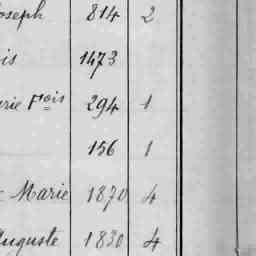 Joseph 814 2
is 1473
rie Fois 294 1
156 1
Marie 1870 4
Auguste 1830 4